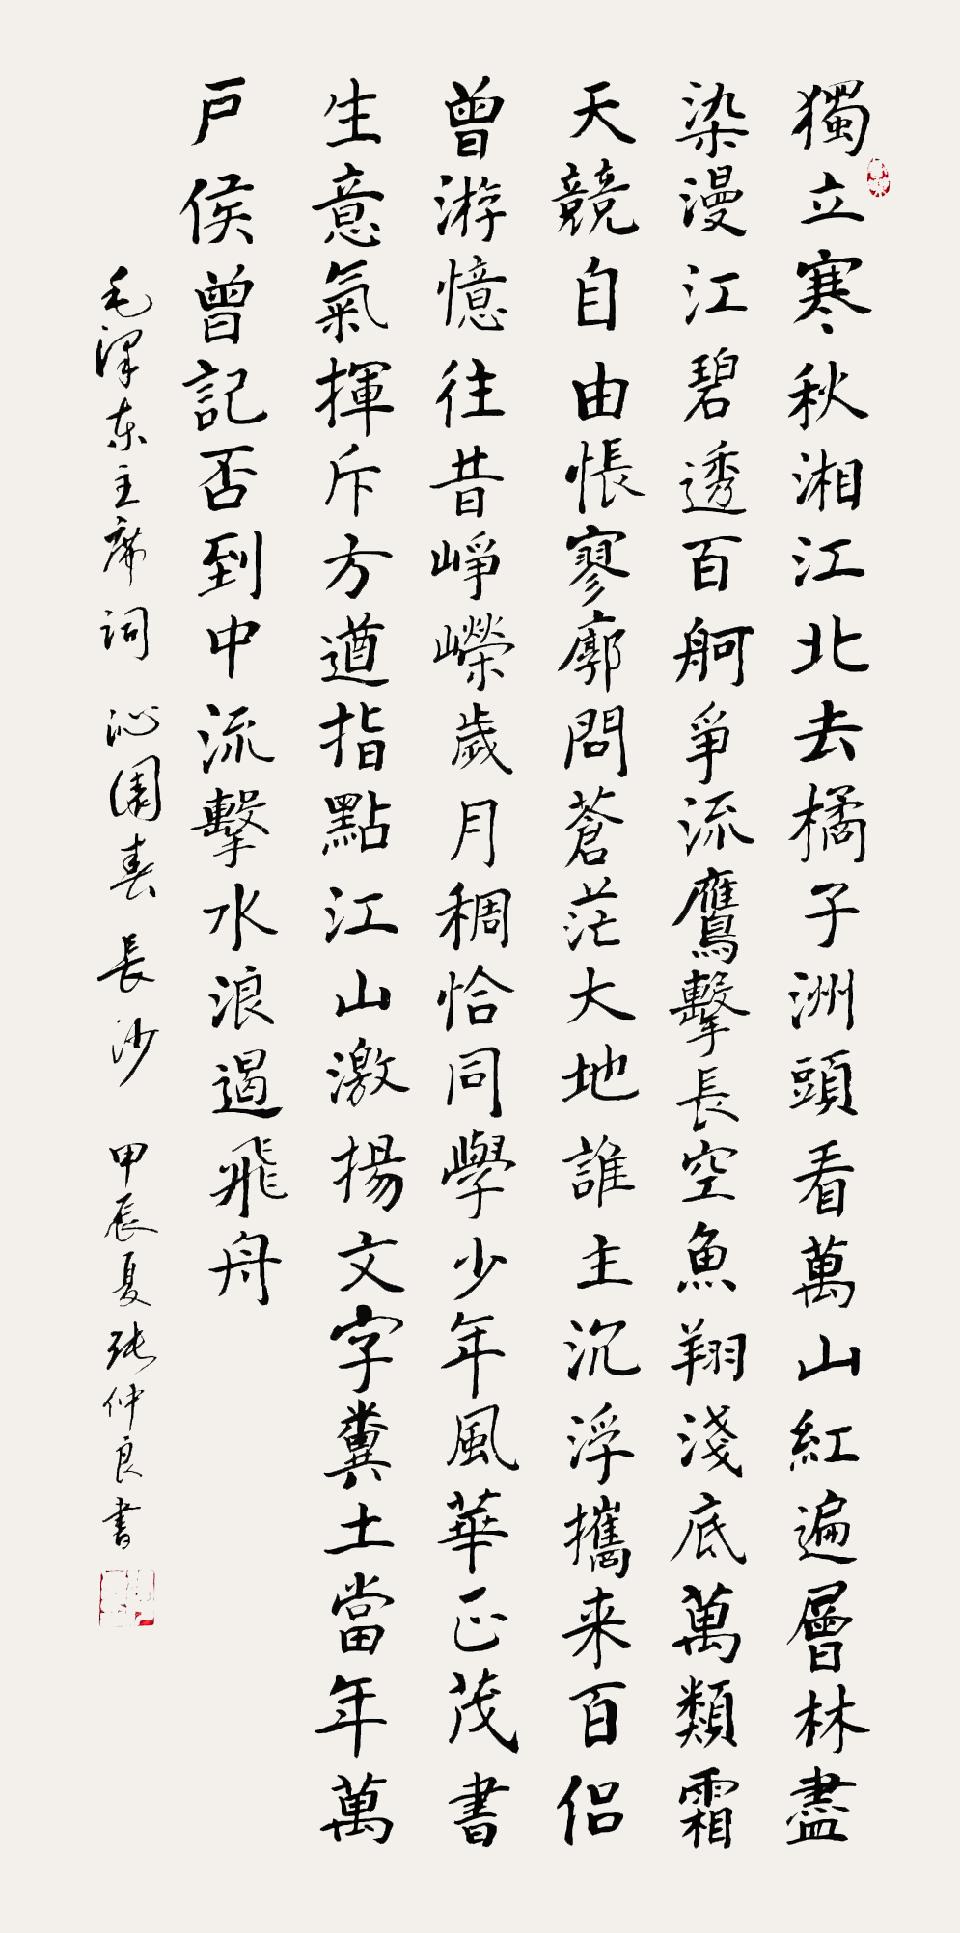 獨立寒秋湘江北去橘子洲頭看萬山紅遍層林盡
染漫江碧透百舸爭流鷹擊長空魚翔淺底萬類霜
天競自由悵寥廓問蒼茫大地誰主沉浮攜来百侣
曾游憶往昔崢嶸歲月稠恰同學少年風華正茂書
生意氣揮斥方遒指點江山激揚文字糞土當年萬
戶侯曾記否到中流擊水浪遏飛舟
毛澤东主席词 沁園春 長沙 甲辰夏 张仲良書